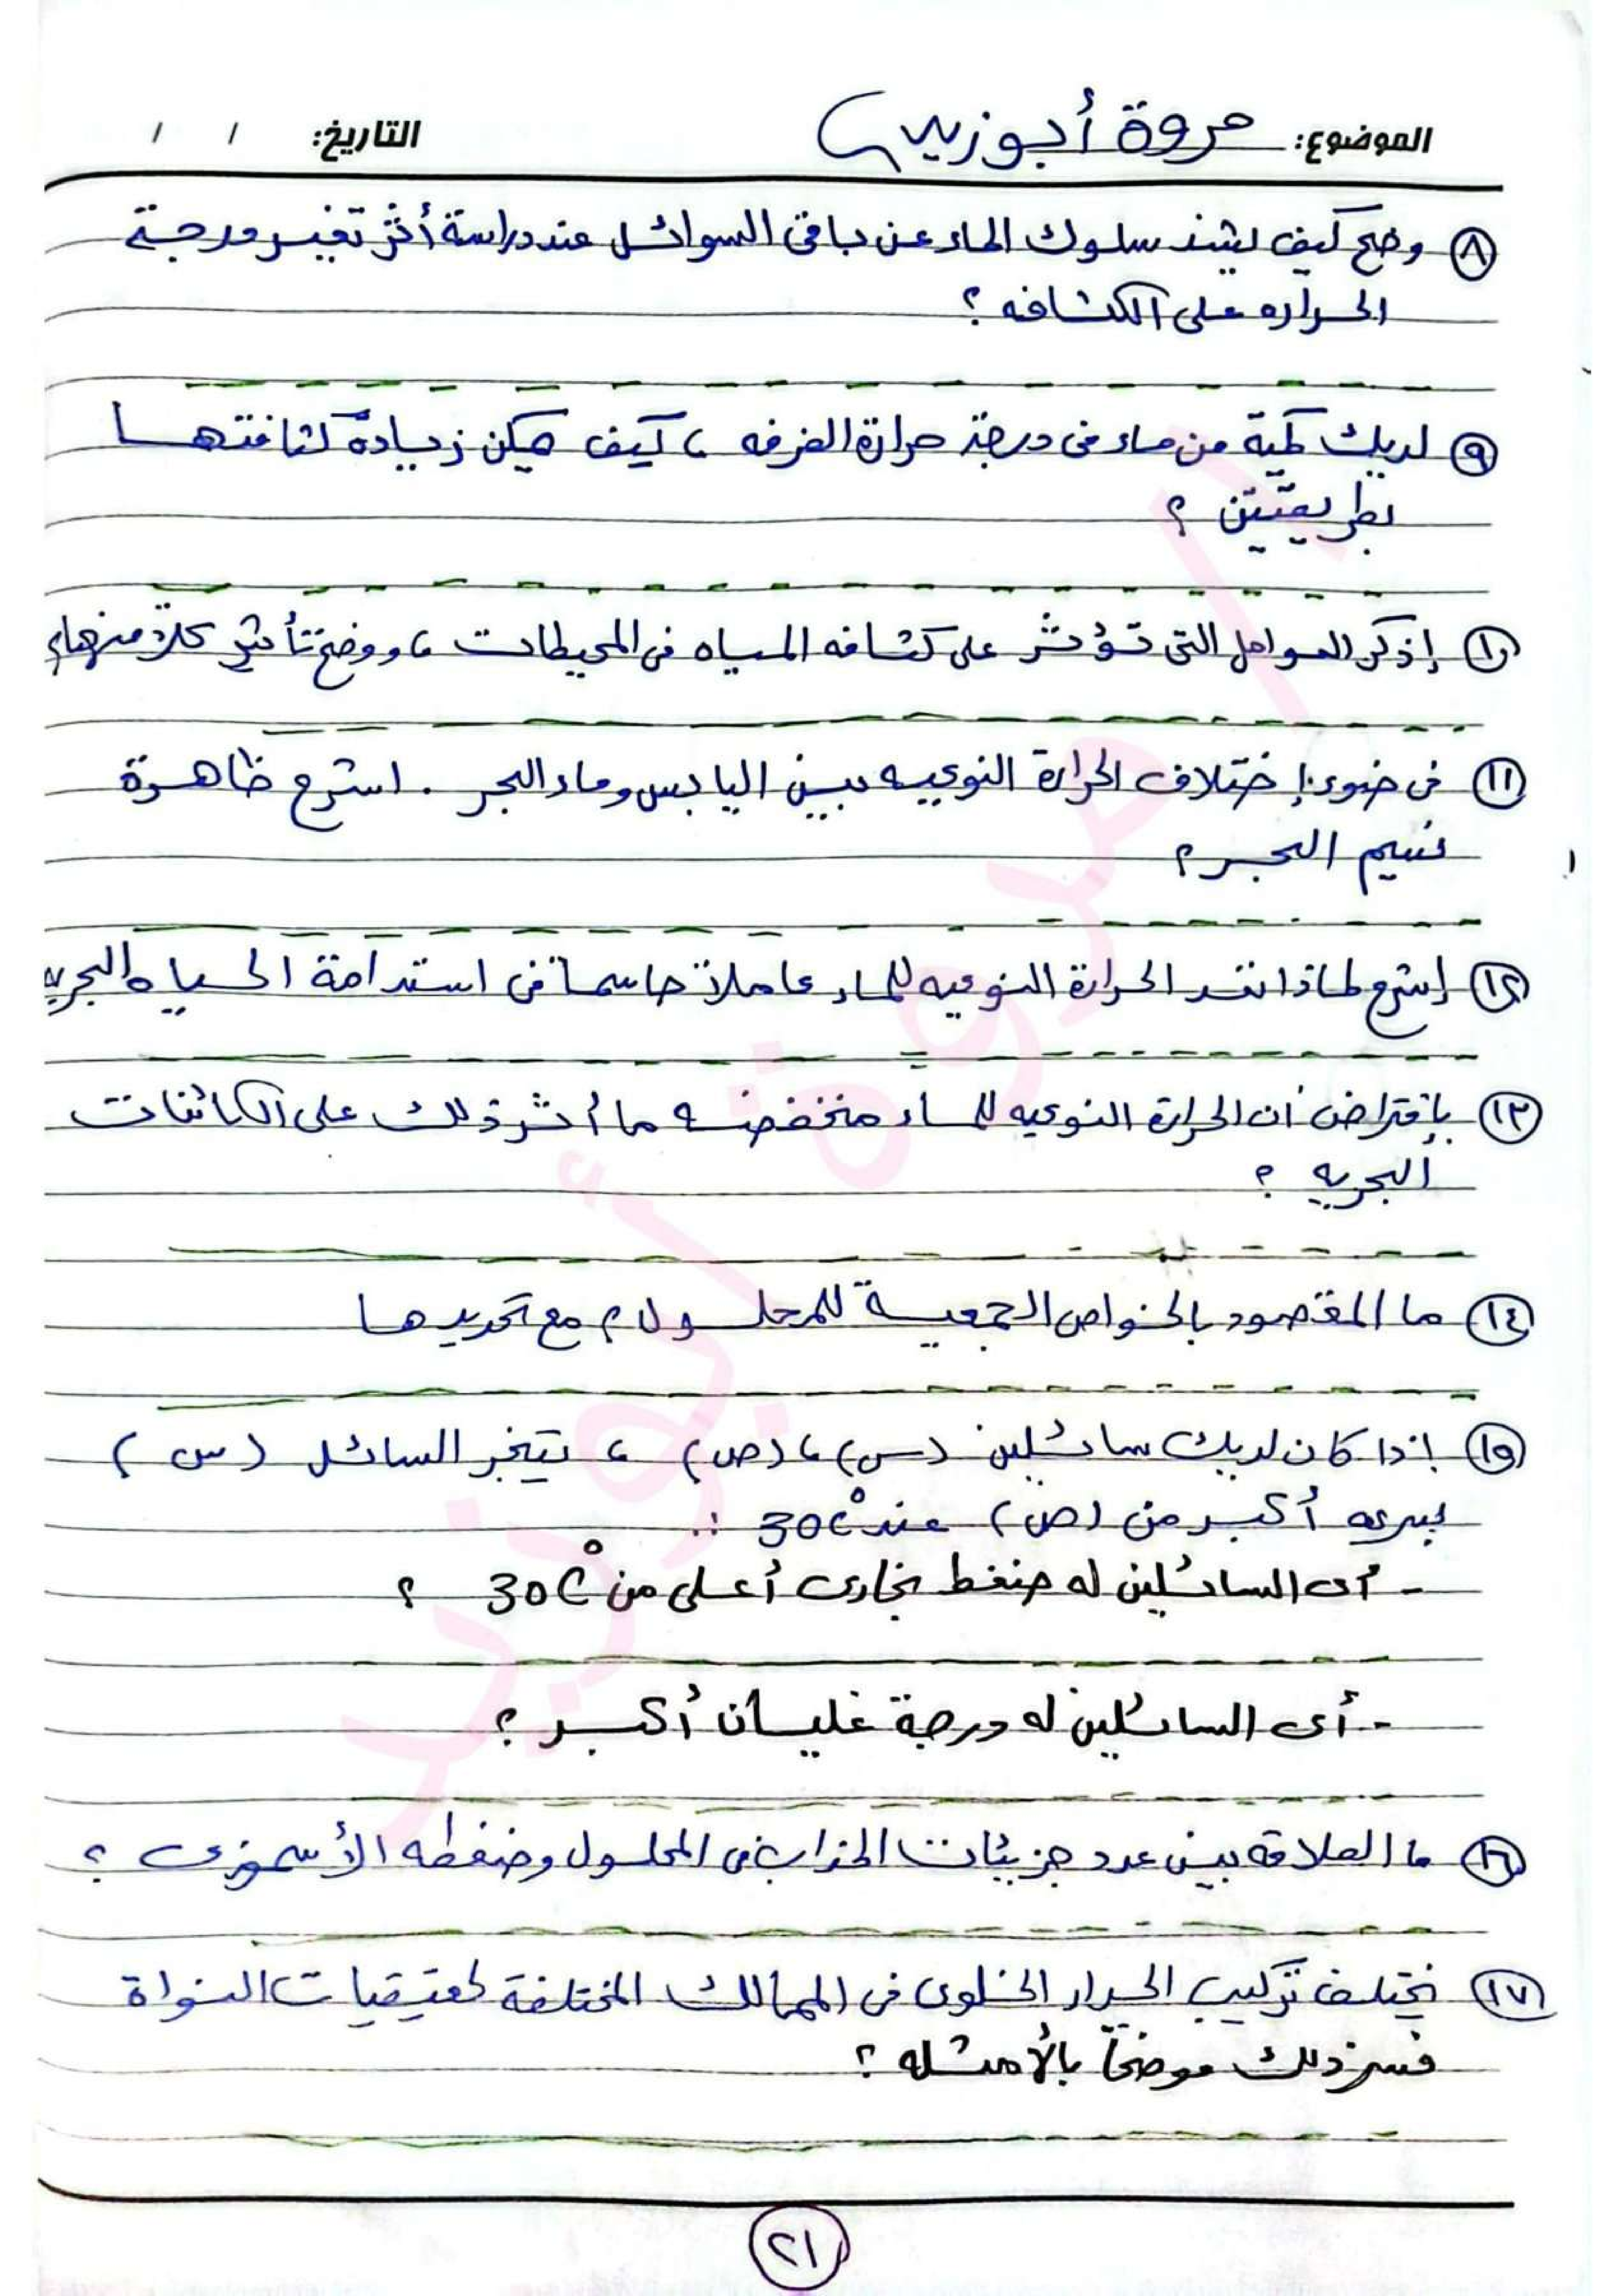 الموضوع: مروة أبوزيد
التاريخ: / /
٨ وضح كيف يشذ سلوك الماء عن باقى السوائل عند دراسة أثر تغير درجة
الحراره على الكثافه ؟
٩ لديك كمية من ماء فى درجة حرارة الغرفه ، كيف يمكن زيادة كثافتها
بطريقتين ؟
١٠ إذكر العوامل التى تؤثر على كثافه المياه فى المحيطات ، ووضح تأثير كلاً منها ؟
١١ فى ضوء إختلاف الحرارة النوعيه بين اليابس وماء البحر . اشرح ظاهرة
نسيم البحر ؟
١٢ إشرح لماذا تعد الحرارة النوعيه للماء عاملاً حاسماً فى استدامة الحياه البحريه
١٣ بإفتراض أن الحرارة النوعيه للماء منخفضه ما أثر ذلك على الكائنات
البحريه ؟
١٤ ما المقصود بالخواص الجمعية للمحلول ؟ مع تحديدها
١٥ إذا كان لديك سائلين (س) ، (ص) ، يتبخر السائل (س)
بسرعه أكبر من (ص) عند 30C° :.
- أى السائلين له ضغط بخارى أعلى من 30C° ؟
- أى السائلين له درجة غليان أكبر ؟
١٦ ما العلاقه بين عدد جزيئات المذاب فى المحلول وضغطه الأسموزى ؟
١٧ يختلف تركيب الجدار الخلوى فى الممالك المختلفة لحقيقيات النواة
فسر ذلك موضحاً بالأمثله ؟
٢١
مروة أبوزيد